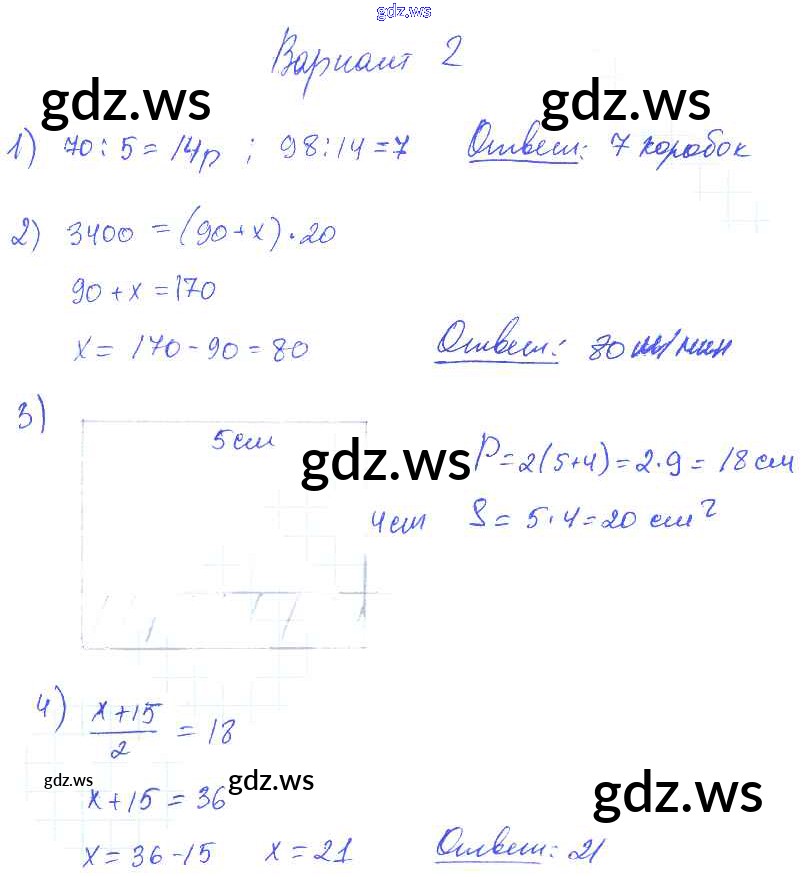 gdz.ws
Вариант 2
gdz.ws gdz.ws
1) 70 : 5 = 14р ; 98 : 14 = 7 Ответ: 7 коробок
2) 3400 = (90 + x) · 20
90 + x = 170
x = 170 - 90 = 80 Ответ: 80 м/мин
3)
5 см
gdz.ws P = 2(5+4) = 2 · 9 = 18 см
4 см S = 5 · 4 = 20 см²
4) (x + 15)/2 = 18
gdz.ws gdz.ws gdz.ws
x + 15 = 36
x = 36 - 15 x = 21 Ответ: 21